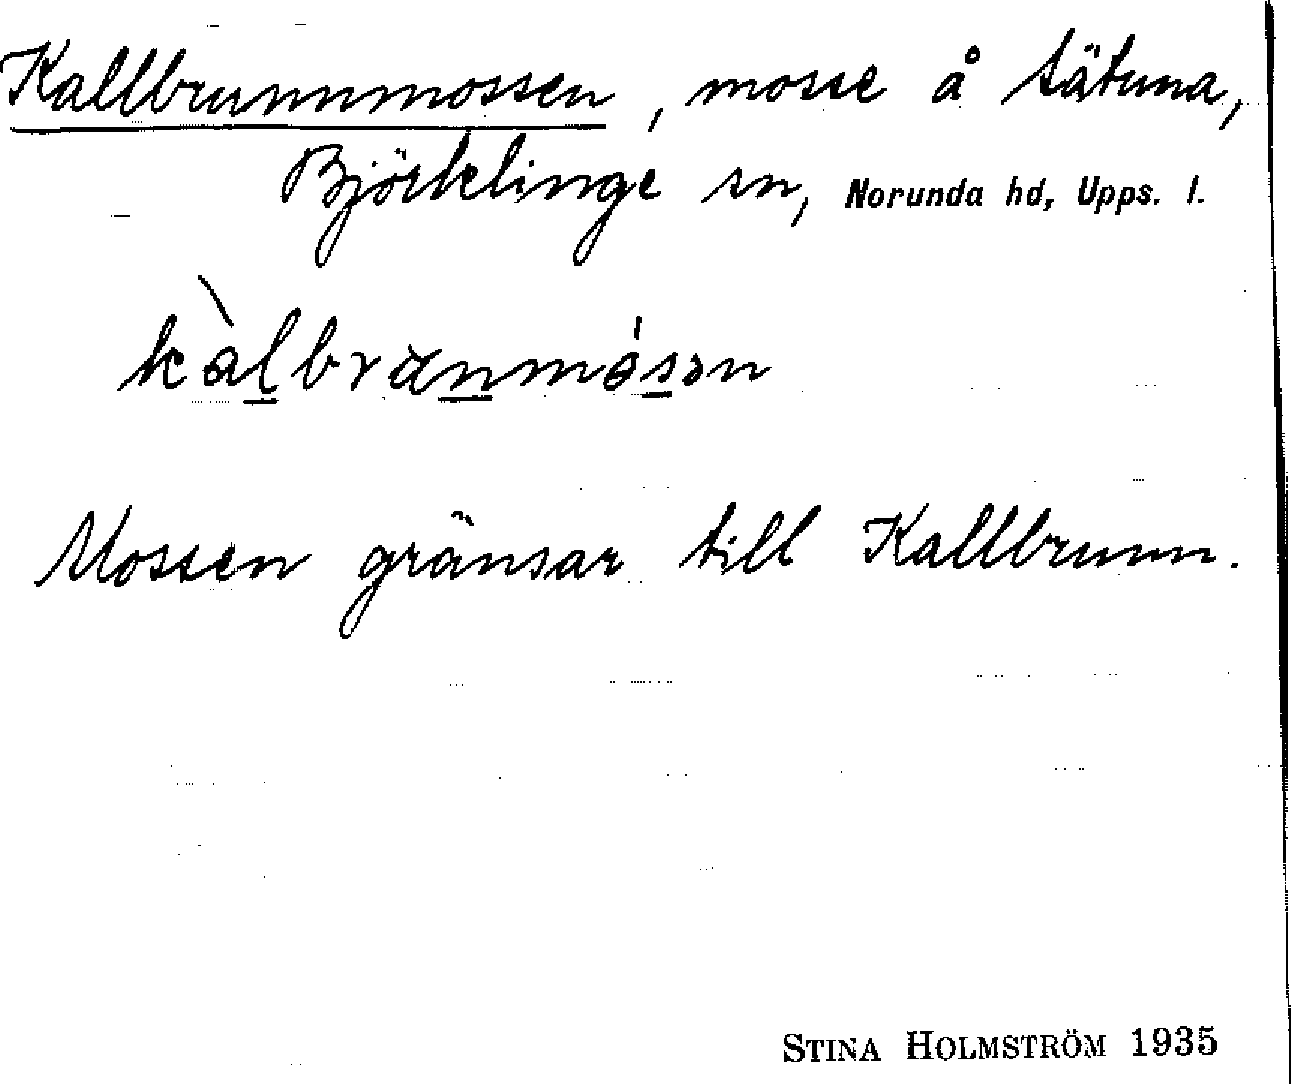 Kallbrunnmossen, mosse å Tätuna,
Björklinge sn, Norunda hd, Upps. l.
kàlbranmósən
Mossen gränsar till Kallbrunn.
STINA HOLMSTRÖM 1935